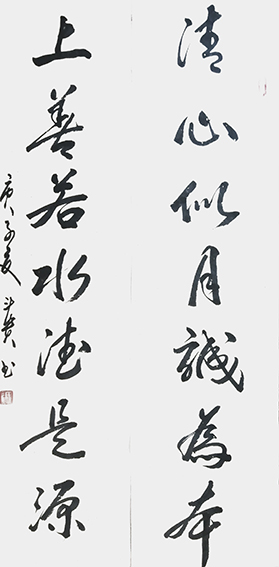 清心似月誠為本
上善若水德是源
庚子夏斗賓书